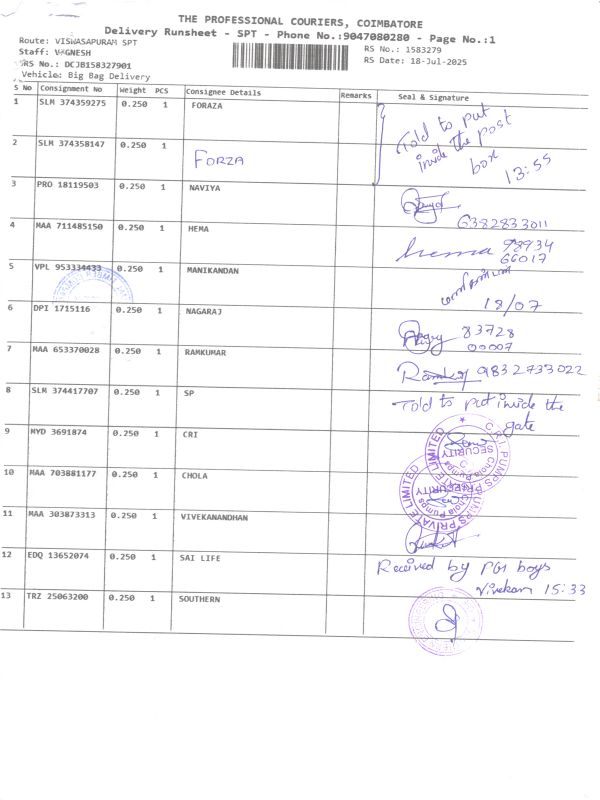 THE PROFESSIONAL COURIERS, COIMBATORE
Delivery Runsheet - SPT - Phone No.:9047080280 - Page No.:1
Route: VISWASAPURAM SPT
RS No.: 1583279
Staff: VIGNESH
RS Date: 18-Jul-2025
RS No.: DCJB158327901
Vehicle: Big Bag Delivery
S No Consignment No Weight PCS Consignee Details Remarks Seal & Signature
1 SLM 374359275 0.250 1 FORAZA
Told to put
inside the post
box
13:55
2 SLM 374358147 0.250 1 FORZA
3 PRO 18119503 0.250 1 NAVIYA
6382833011
4 MAA 711485150 0.250 1 HEMA
hema 98934
66017
5 VPL 953334433 0.250 1 MANIKANDAN
மணிகண்டன்
18/07
6 DPI 1715116 0.250 1 NAGARAJ
83728
00007
7 MAA 653370028 0.250 1 RAMKUMAR
9832733022
8 SLM 374417707 0.250 1 SP
Told to put inside the
gate
9 MYD 3691874 0.250 1 CRI
C.R.I. PUMPS PRIVATE LIMITED
Chola Pumps
SECURITY
10 MAA 703881177 0.250 1 CHOLA
PUMPS PRIVATE LIMITED
Chola Pumps
SECURITY
11 MAA 303873313 0.250 1 VIVEKANANDHAN
12 EDQ 13652074 0.250 1 SAI LIFE
Received by PG boys
Vivekan 15:33
13 TRZ 25063200 0.250 1 SOUTHERN